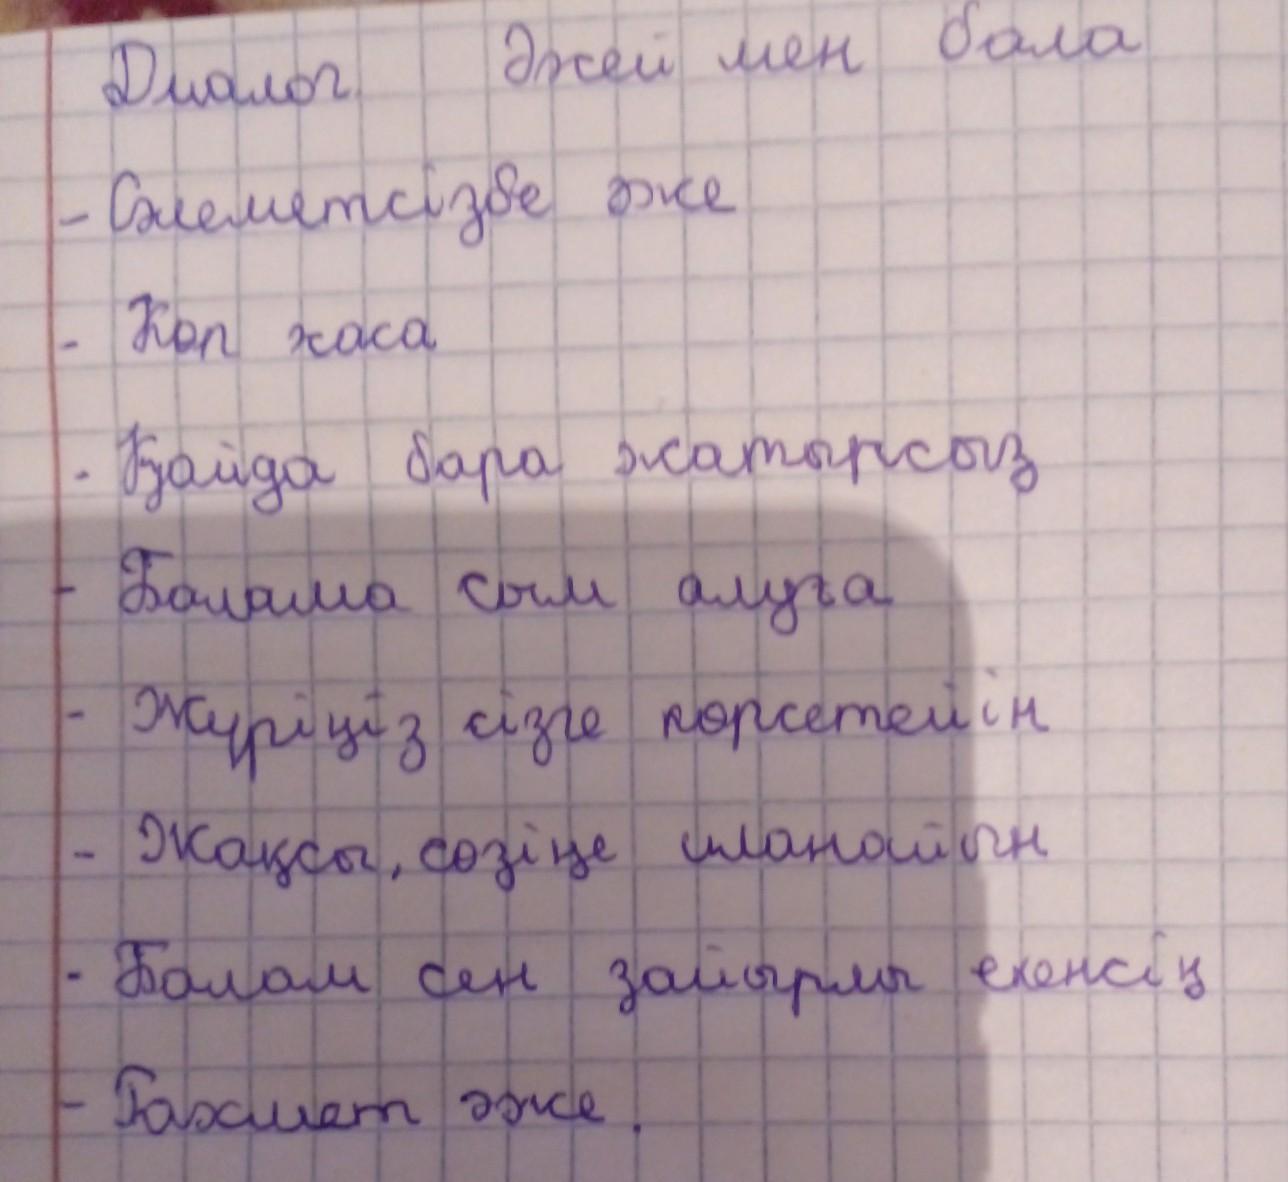 Диалог Әжей мен бала
- Сәлеметсізбе әже
- Көп жаса
- Қайда бара жатырсыз
- Балама сыйлық алуға
- Жүріңіз сізге көрсетейін
- Жақсы, сөзіңе иланайын
- Балам сен зайырлы екенсің
- Рахмет әже.